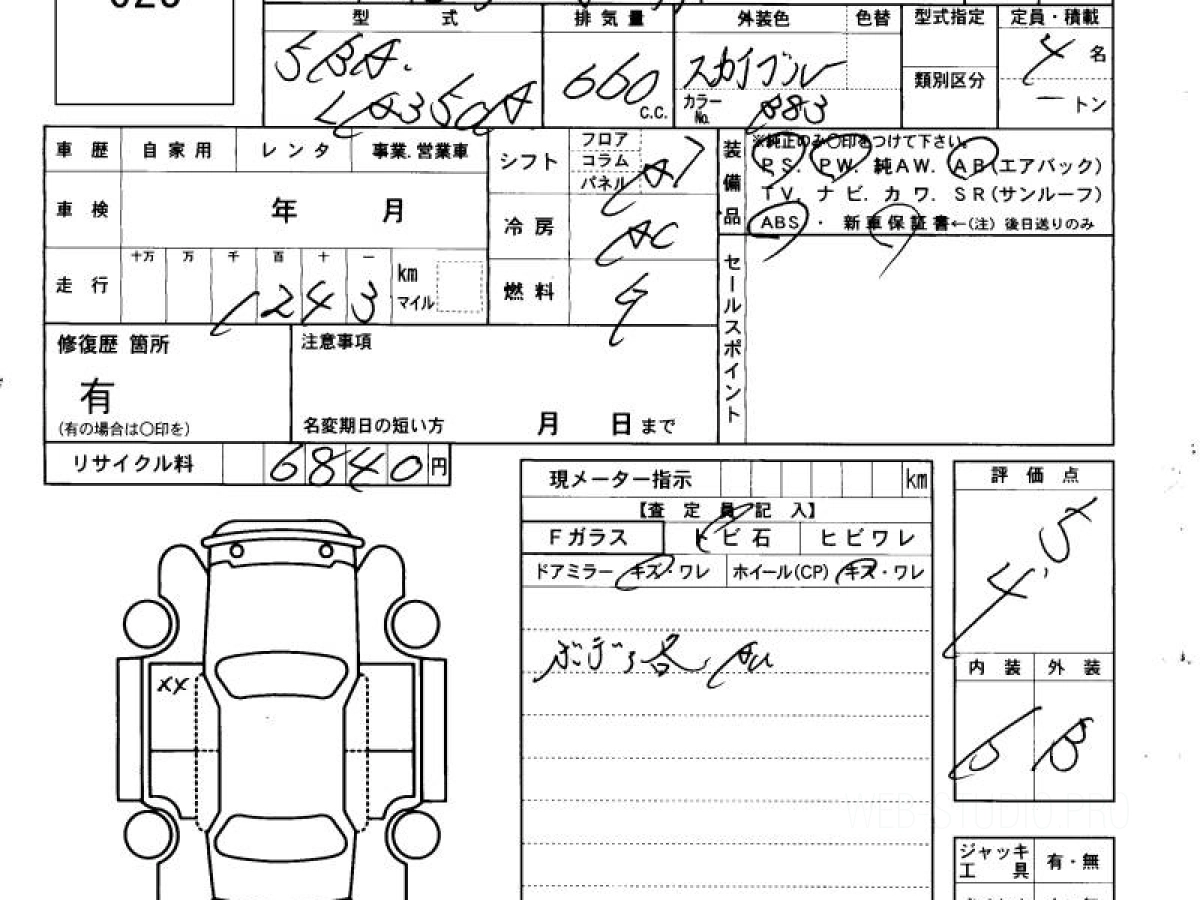 型 式 排 気 量 外装色 色替 型式指定 定員・積載
5BA. 660 スカイブルー 4 名
LA350A c.c. カラーNo. B83 類別区分 ー トン
車 歴 自 家 用 レ ン タ 事業.営業車
シフト フロア コラム パネル AT
装備品 ※純正のみ〇印をつけて下さい。
PS. PW. 純AW. AB(エアバック)
TV. ナ ビ. カ ワ. SR(サンルーフ)
ABS ・ 新 車 保 証 書←(注) 後日送りのみ
車 検 年 月
冷 房 AC
走 行 十万 万 千 百 十 一
1243 km マイル
燃 料
セールスポイント
修復歴 箇所
有
(有の場合は〇印を)
注意事項
名変期日の短い方 月 日まで
リサイクル料 6840 円
現メーター指示 km
【査 定 員 記 入】
Fガラス トビ石 ヒビワレ
ドアミラー キズ・ワレ ホイール(CP) キズ・ワレ
XX
評 価 点
4.5
内 装 外 装
B
WEB-STUDIO.PRO
ジャッキ
工 具 有・無